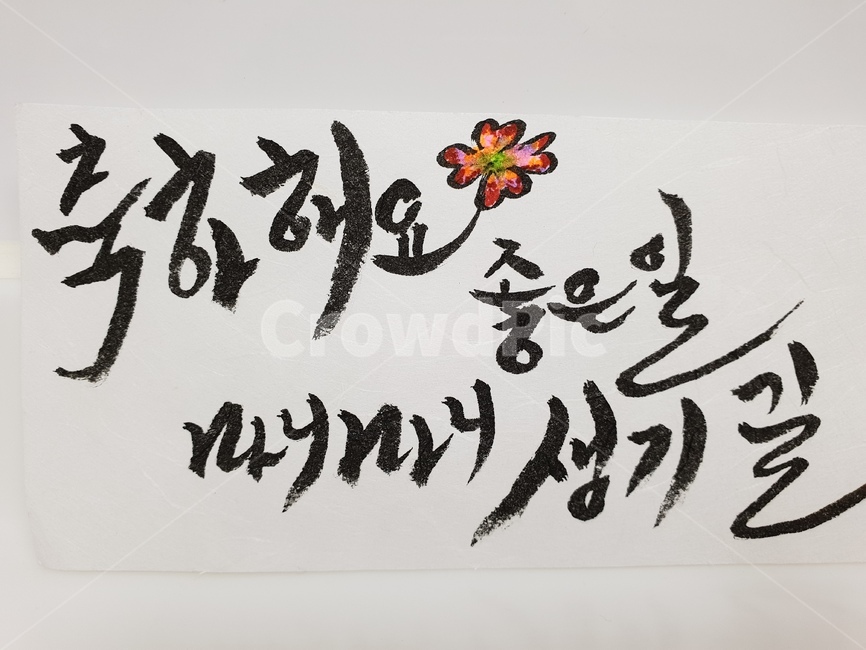 축하해요
좋은일
마니마니 생기길
CrowdPic